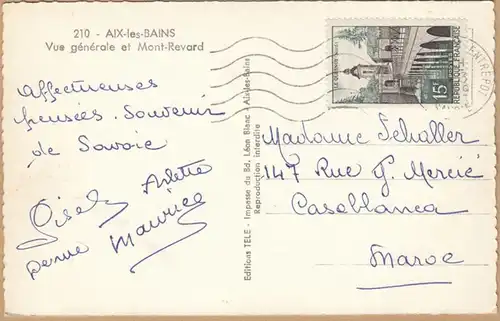 210 - AIX-les-BAINS
Vue générale et Mont-Revard
Affectueuses
pensées. Souvenir
de Savoie
Arlette
Gisel
Maurice
Editions TELE - Impasse du Bd. Léon Blanc - Aix-les-Bains
Reproduction interdite
15F
REPUBLIQUE FRANÇAISE
ENTREPOT
Madame Schaller
147 Rue G. Mercié
Casablanca
Maroc